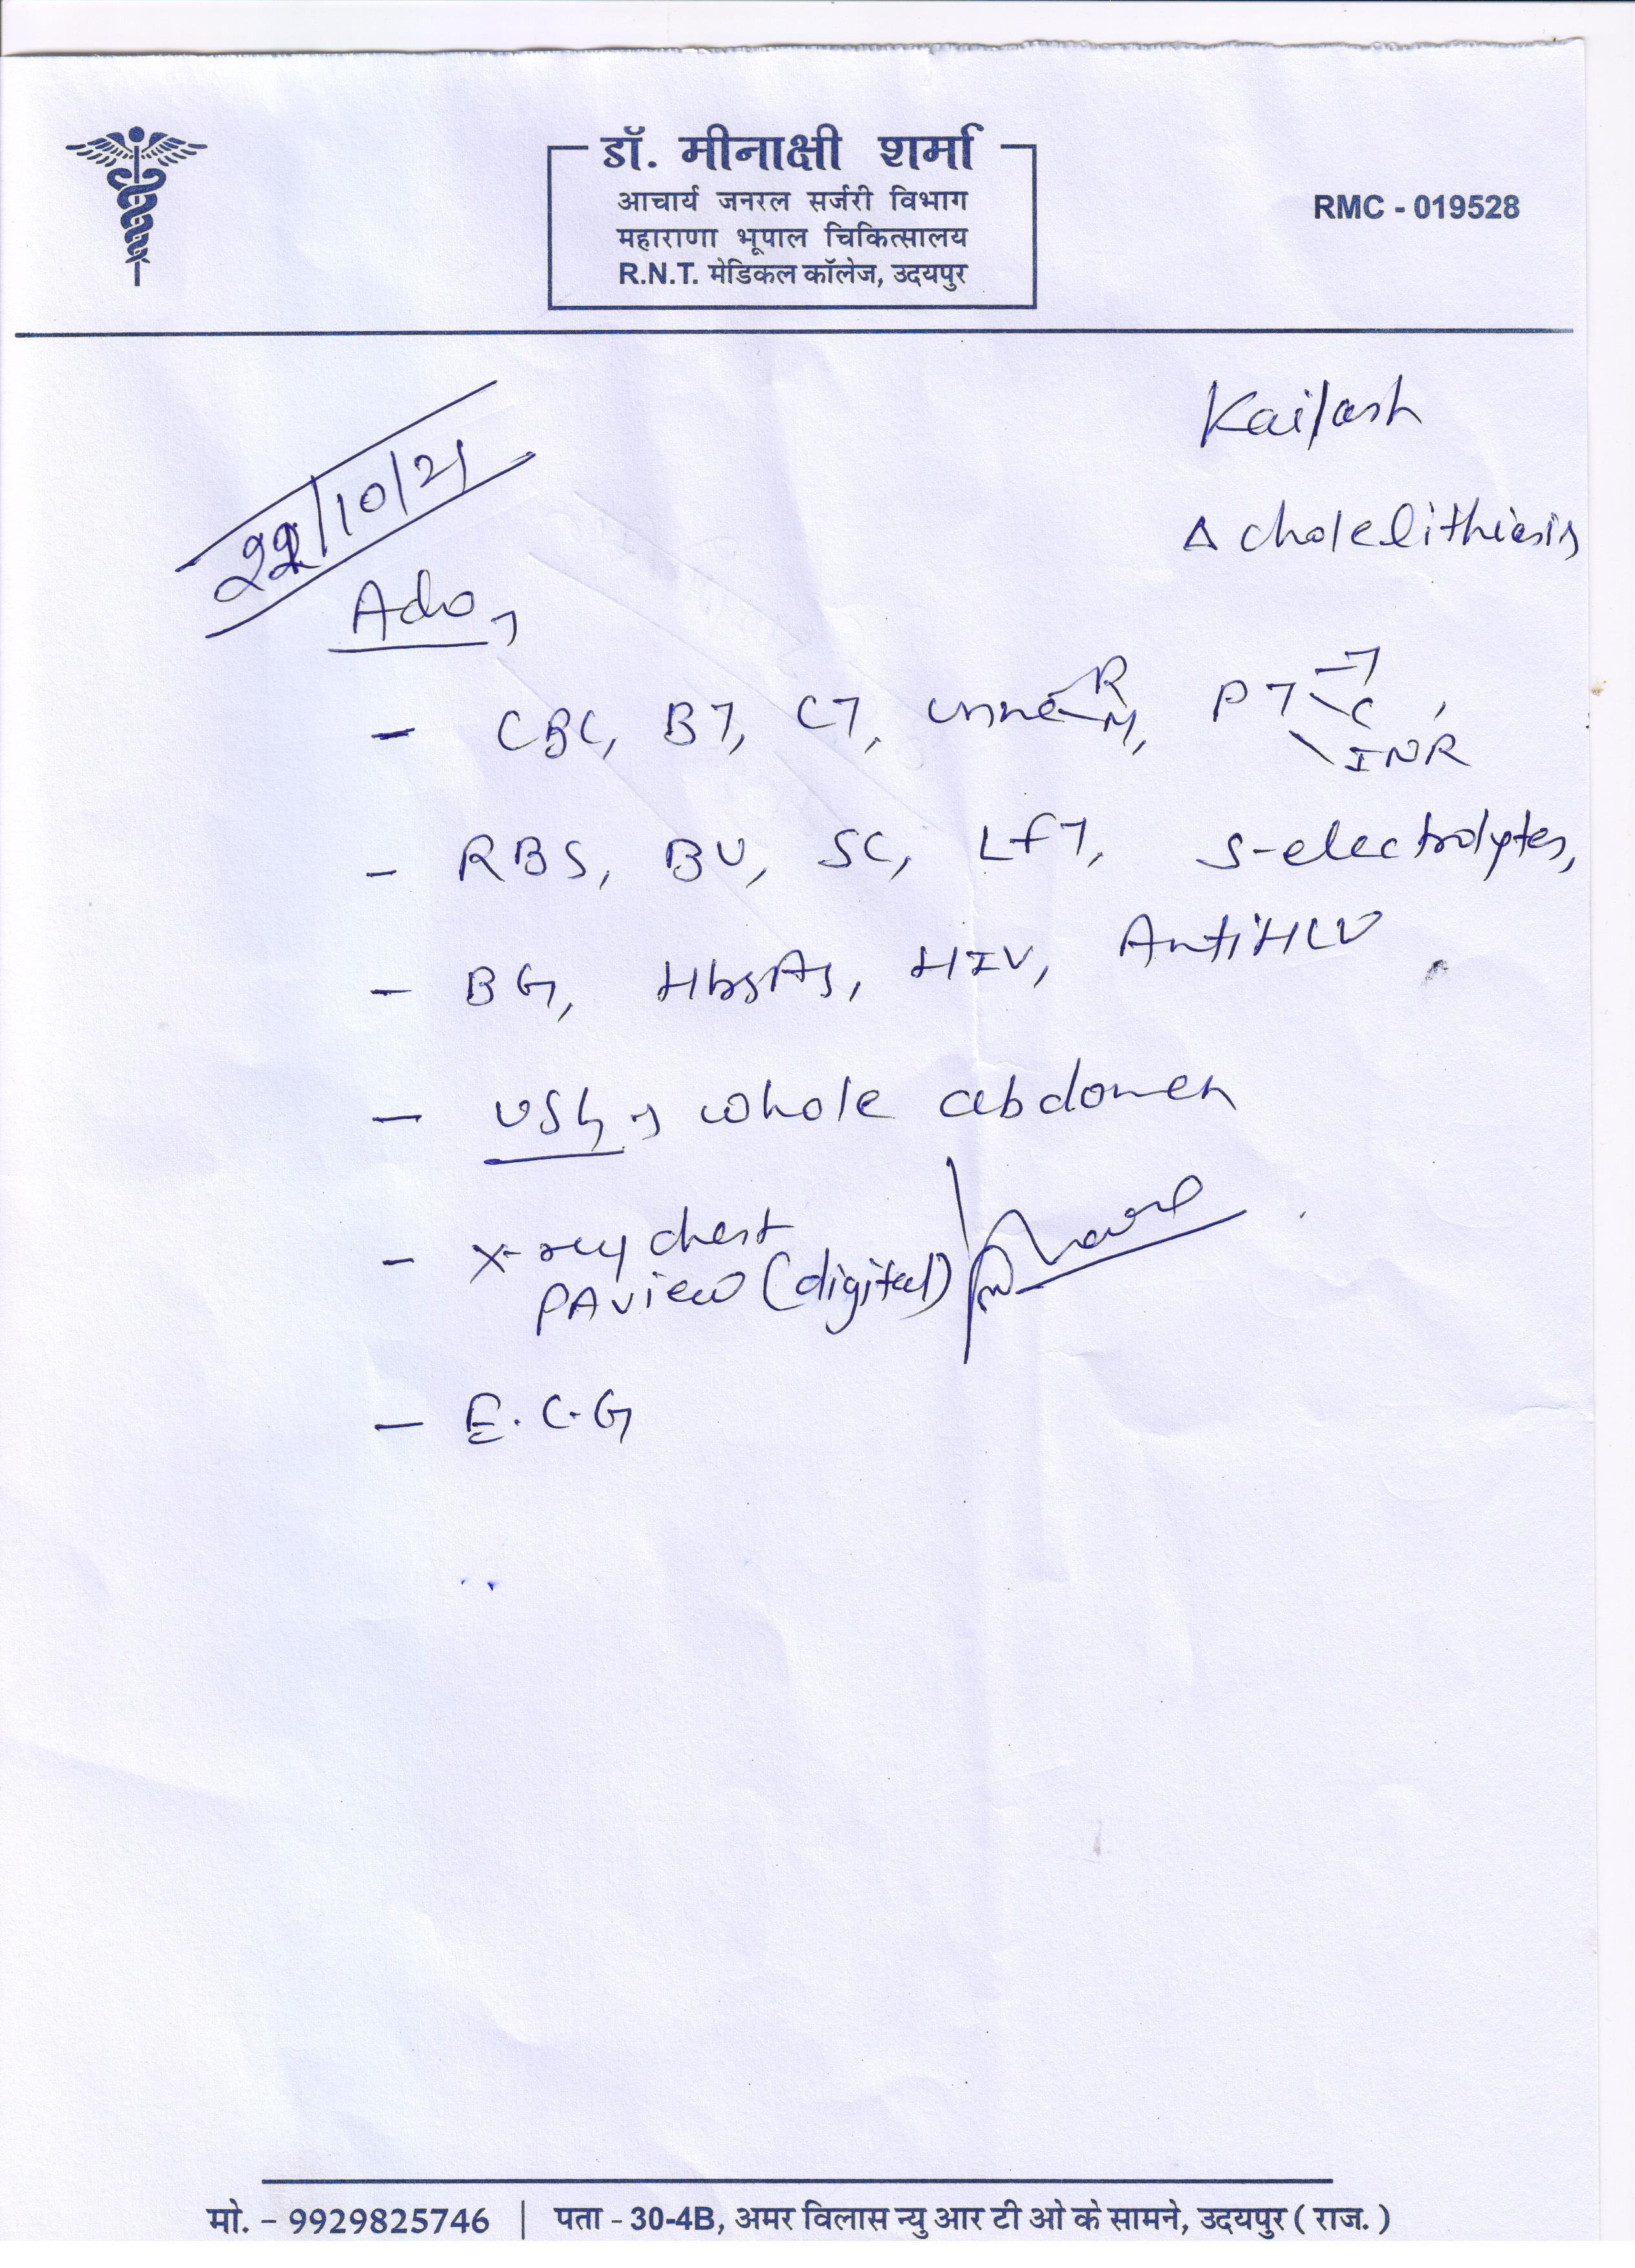 डॉ. मीनाक्षी शर्मा
आचार्य जनरल सर्जरी विभाग
महाराणा भूपाल चिकित्सालय
R.N.T. मेडिकल कॉलेज, उदयपुर
RMC - 019528
Kailash
22/10/21
Δ cholelithiasis
Adv,
- CBC, BT, CT, urine R M, PT T C INR,
- RBS, BU, SC, LFT, S-electrolytes,
- BG, HbsAg, HIV, AntiHCV
- USG, whole abdomen
- X-ray chest
PA view (digital)
- E.C.G
मो. - 9929825746 | पता - 30-4B, अमर विलास न्यु आर टी ओ के सामने, उदयपुर ( राज. )